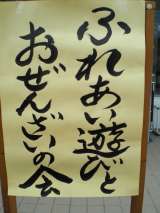 ふれあい遊びと
おぜんざいの会